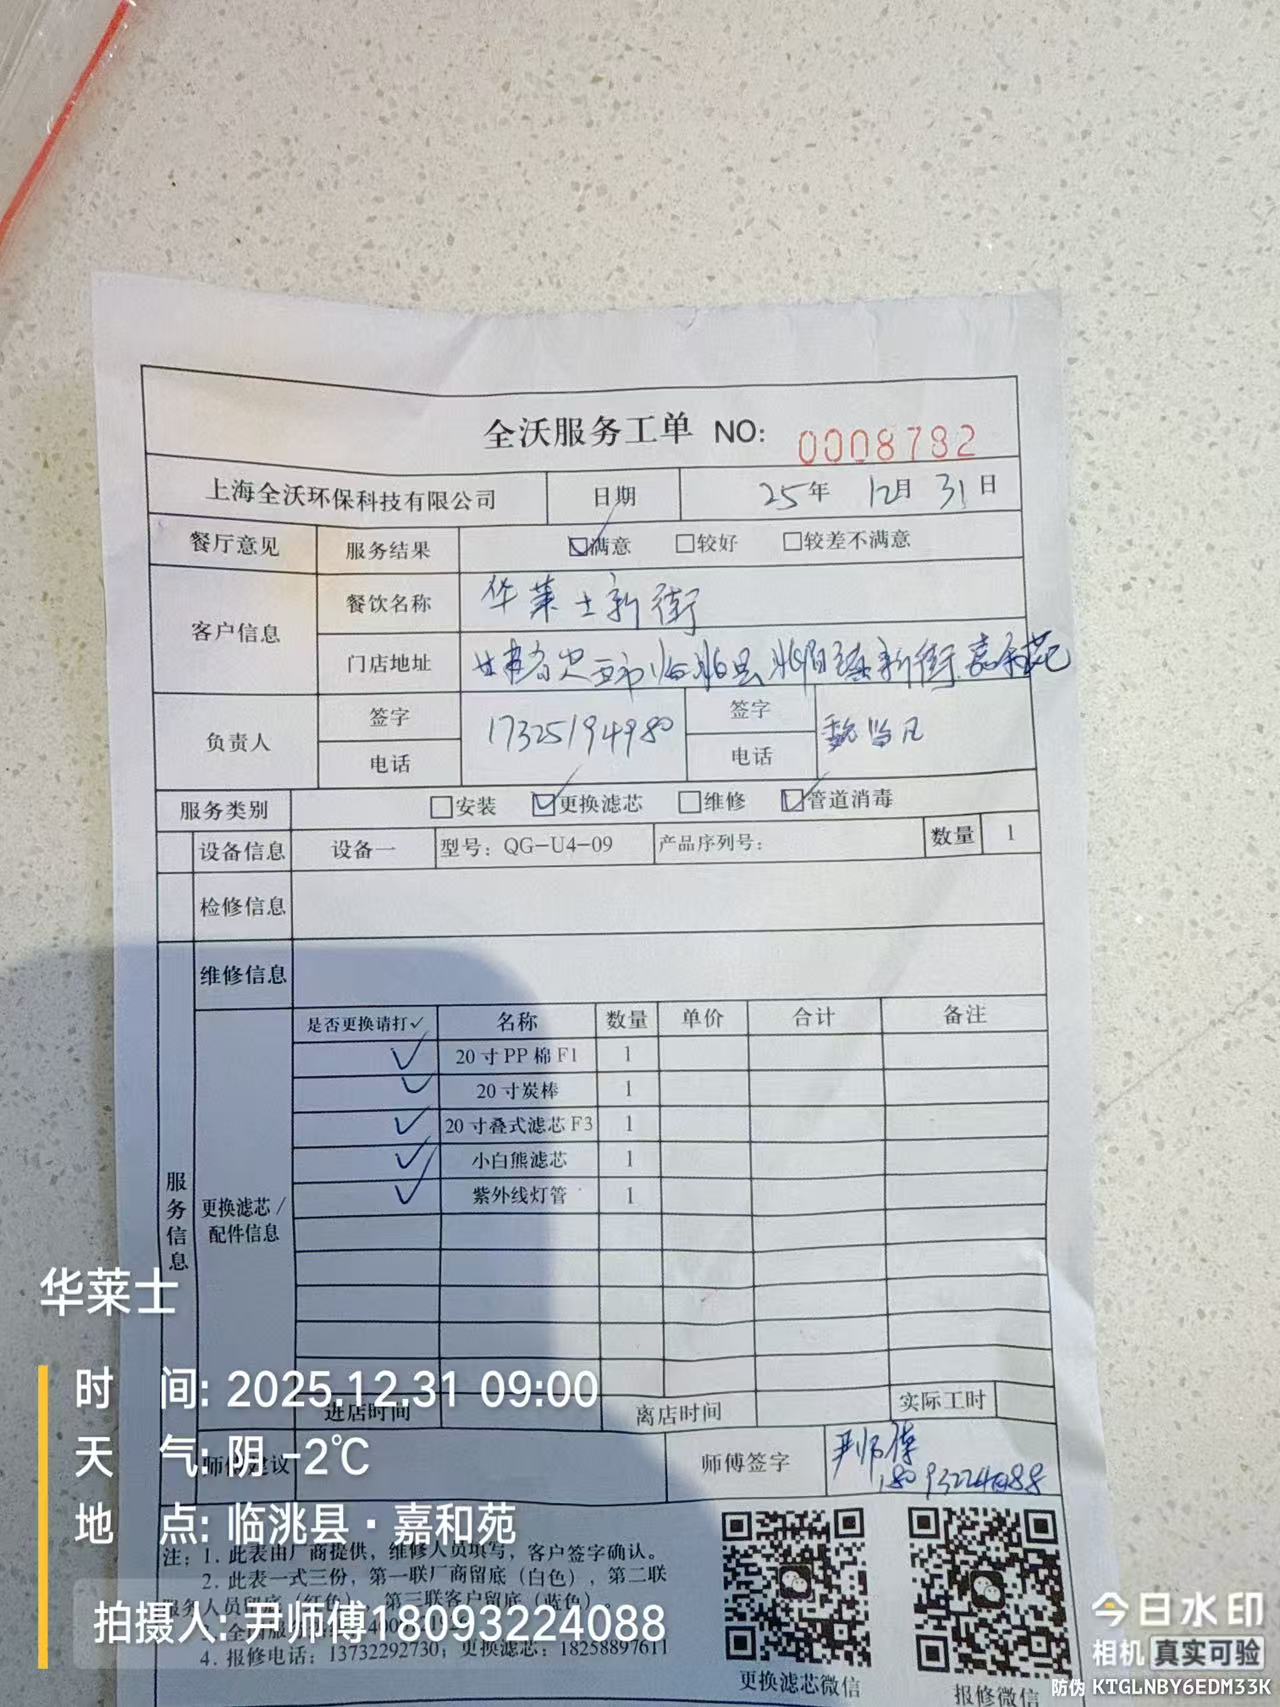 全沃服务工单 NO: 0008782
上海全沃环保科技有限公司 日期 25年 12月 31日
餐厅意见 服务结果 ☑满意 □较好 □较差不满意
客户信息 餐饮名称 华莱士新街
门店地址 甘肃省定西市临洮县洮阳镇新街嘉和苑
负责人 签字 17325194980 签字
电话 电话
服务类别 □安装 ☑更换滤芯 □维修 ☑管道消毒
设备信息 设备一 型号：QG-U4-09 产品序列号： 数量 1
检修信息
维修信息
服务信息
更换滤芯/配件信息
是否更换请打✓ 名称 数量 单价 合计 备注
✓ 20寸PP棉F1 1
✓ 20寸炭棒 1
✓ 20寸叠式滤芯F3 1
✓ 小白熊滤芯 1
✓ 紫外线灯管 1
进店时间 离店时间 实际工时
师傅建议 师傅签字 尹师傅
18093224088
注：1. 此表由厂商提供，维修人员填写，客户签字确认。
2. 此表一式三份，第一联厂商留底（白色），第二联
服务人员留底（红色），第三联客户留底（蓝色）。
4. 报修电话：13732292730；更换滤芯：18258897611
更换滤芯微信 报修微信
华莱士
时 间: 2025.12.31 09:00
天 气: 阴 -2℃
地 点: 临洮县·嘉和苑
拍摄人: 尹师傅18093224088
今日水印
相机 真实可验
防伪 KTGLNBY6EDM33K